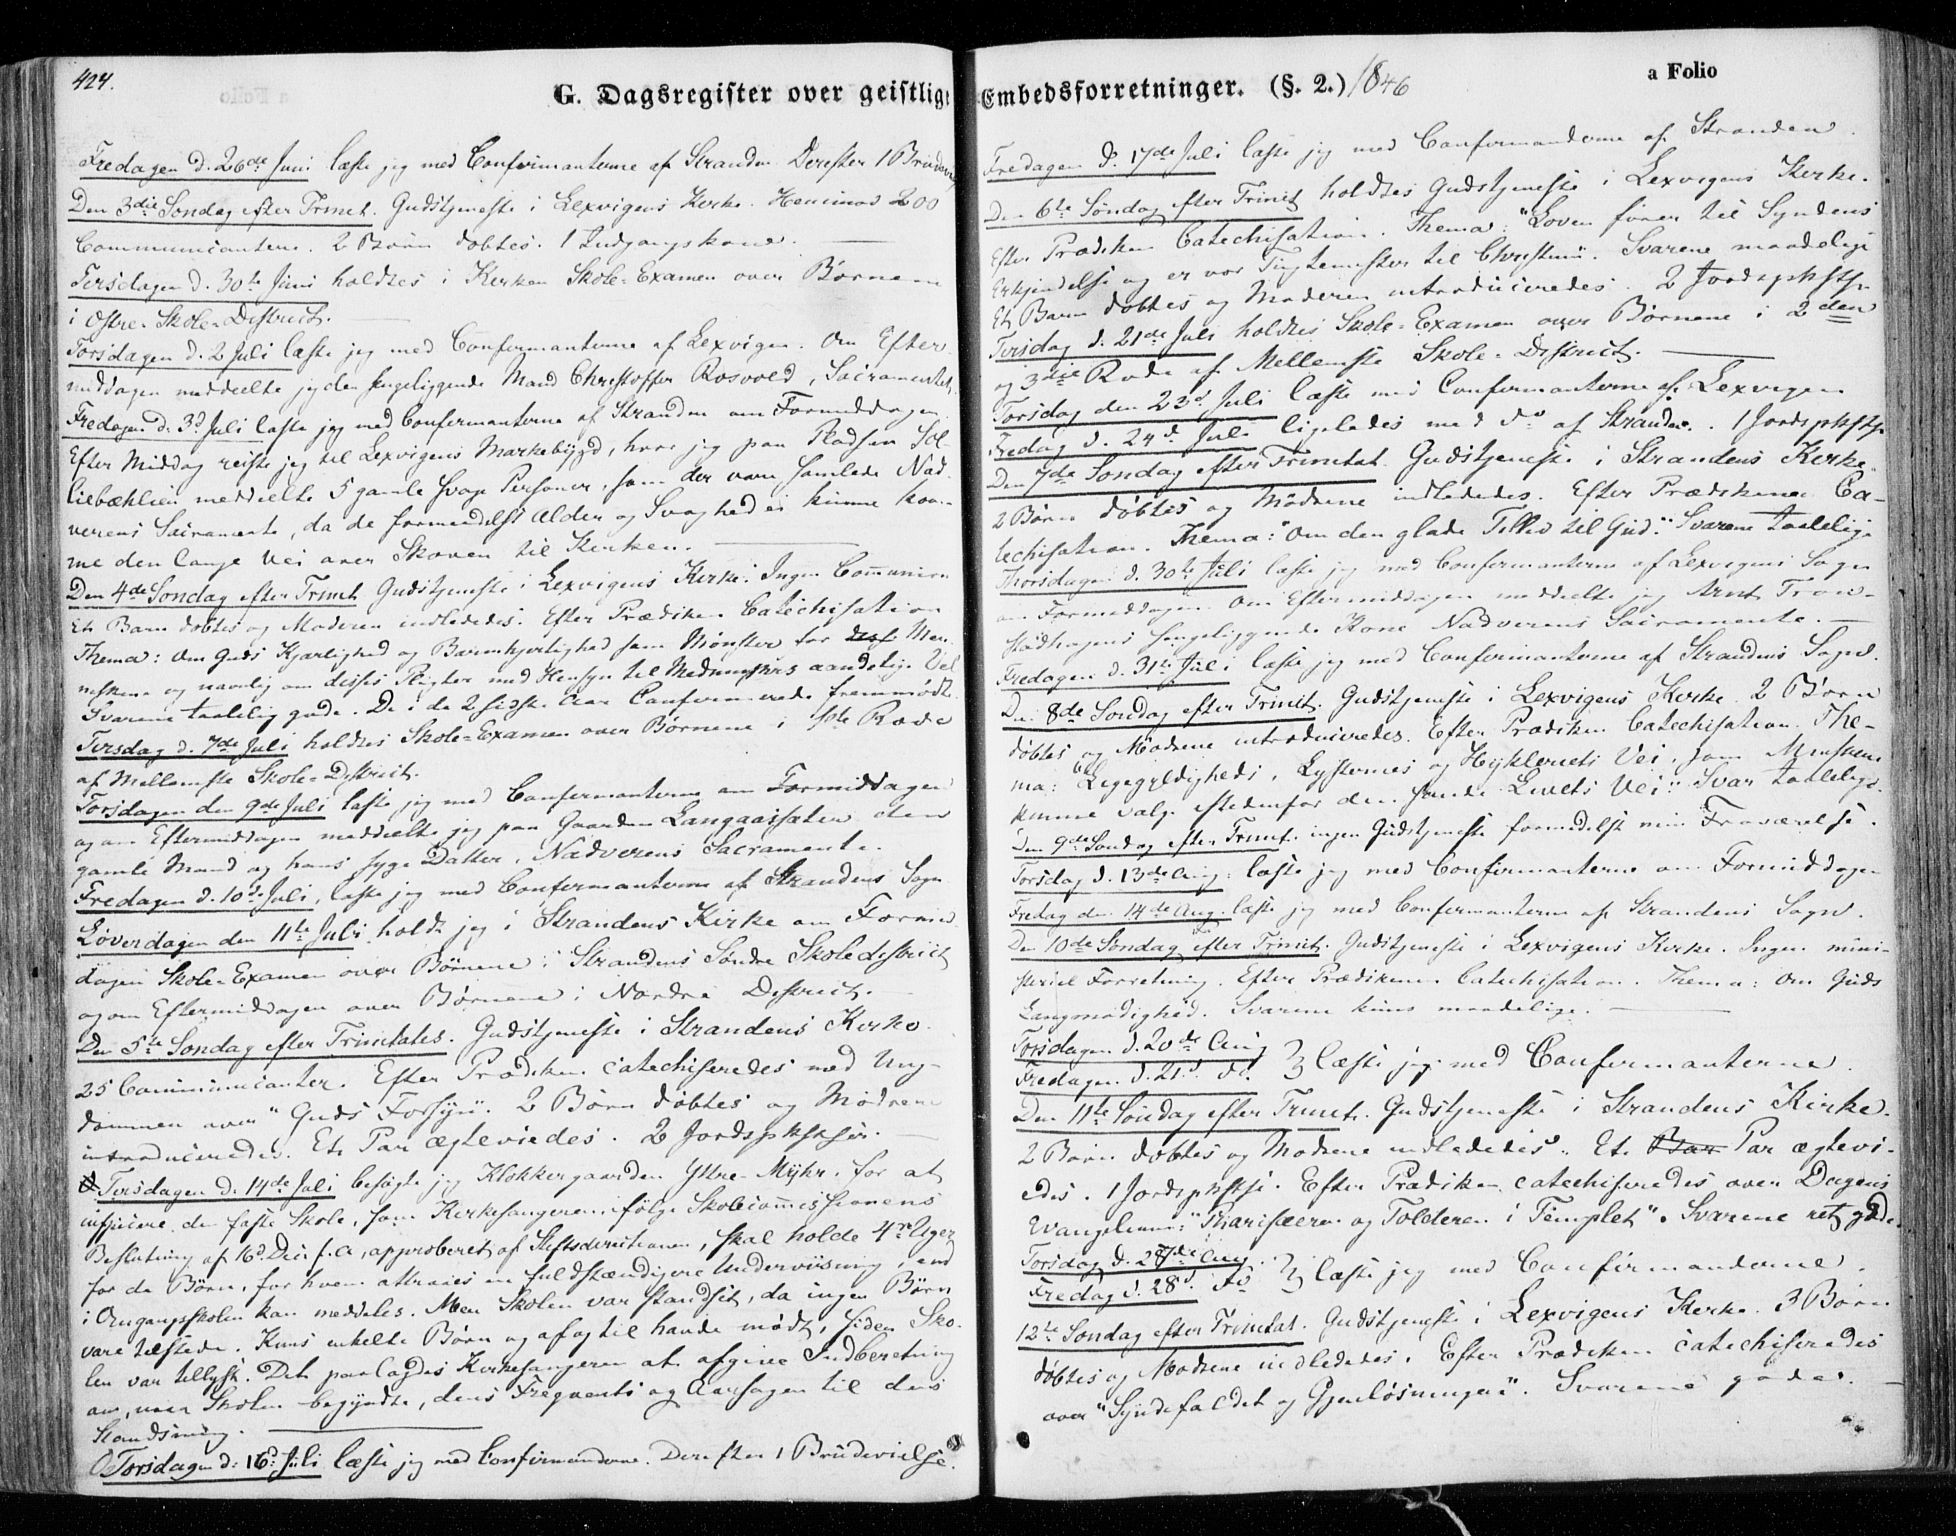 424.
G. Dagsregister over geistlige
Fredagen d. 26de Juni læste jeg med Confirmanterne af Stranden. Derefter 1 Brudevielse
Den 3die Søndag efter Trinit. Gudstjeneste i Lexvigens Kirke. Henimod 200
Communicantere. 2 Børn døbtes. 1 Indgangskone.
Tirsdagen d. 30te Juni holdtes i Kirken Skole-Examen over Børnene
i Østre Skole-District.
Torsdagen d. 2 Juli læste jeg med Confirmanterne af Lexvigen. Om Efter-
middagen meddeelte jeg den sengeliggende Mand Christoffer Rosvold, Sacramentet.
Fredagen d. 3d Juli læste jeg med Confirmanterne af Stranden om Formiddagen
Efter Middag reiste jeg til Lexvigens Markebygd, hvor jeg paa Pladsen Sol-
liebækliën meddeelte 5 gamle svage Personer, som der vare samlede Nad-
verens Sacramente, da de formedelst Alder og Svaghed ei kunne kom-
me den lange Vei over Skoven til Kirken.
Den 4de Søndag efter Trinit. Gudstjeneste i Lexvigens Kirke. Ingen Communion
Et Barn døbtes og Moderen indlededes. Efter Prædiken Catechisation
Thema: Om Guds Kjærlighed og Barmhjertighed som Mønster for Men-
neskene og navnlig om disses Pligter med Hensyn til Medmenneskers aandelige Vel
Svarene taalelig gode. De i de 2 sidste Aar Confirmerede fremmødte.
Tirsdag d. 7de Juli holdtes Skole-Examen over Børnene i 1ste Rode
af Mellemste Skole-District.
Torsdagen den 9de Juli læste jeg med Confirmanterne om Formiddagen
og om Eftermiddagen meddeelte jeg paa Gaarden Langaaissaten den
gamle Mand og hans syge Datter, Nadverens Sacramente.
Fredagen d. 10de Juli, læste jeg med Confirmanterne af Strandens Sogn
Løverdagen den 11te Juli holdt jeg i Strandens Kirke om Formid-
dagen Skole-Examen over Børnene i Strandens Søndre Skoledistrict
og om Eftermiddagen over Børnene i Nordre District.
Den 5te Søndag efter Trinitates. Gudstjeneste i Strandens Kirke.
25 Communicanter. Efter Prædiken catechiseredes med Ung-
dommen over "Guds Forsyn". 2 Børn døbtes og Mødrene
introduceredes. Et Par ægteviedes. 2 Jordspkstser.
Tirsdagen d. 14de Juli besøgte jeg Klokkergaarden Yttre-Myhr, for at
inspicere den faste Skole, som Kirkesangeren ifølge Skolecommissionens
Beslutning af 16d. Dec. f. A., approberet af Stiftsdirectionen, skal holde 4re Uger
for de Børn, for hvem attraaes en fuldstændigere Underviisning, end
i Omgangsskolen kan meddeles. Men Skolen var standset, da ingen Børn
vare tilstede. Kuns enkelte Børn og af og til havde mødt, siden Sko-
len var tillyst. Det paalagdes Kirkesangeren at afgive Indberetning
om, naar Skolen begyndte, dens Freqvents og Aarsagen til dens
Standsning.
Torsdagen d. 16d. Juli læste jeg med Confirmanderne. Derefter 1 Brudevielse.
Embedsforretninger. (§. 2.) 1846
a Folio
Fredagen d. 17de Juli læste jeg med Confirmanderne af Stranden.
Den 6te Søndag efter Trinit holdtes Gudstjeneste i Lexvigens Kirke.
Efter Prædiken Catechisation. Thema: "Loven fører til Syndens
Erkjendelse og er vor Tugtemester til Christum". Svarene maadelige
Et Barn døbtes og Moderen introduceredes. 2 Jordspkstser.
Tirsdag d. 21de Juli holdtes Skole-Examen over Børnene i 2den
og 3die Rode af Mellemste Skole-District.
Torsdag den 23d Juli læste med Confirmanterne af Lexvigen
Fredag d. 24d. Juli ligeledes med do af Stranden. 1 Jordspkstse
Den 7de Søndag efter Trinitat. Gudstjeneste i Strandens Kirke.
2 Børn døbtes og Mødrene indlededes. Efter Prædikenen Ca-
techisation. Thema: "Om den glade Tillid til Gud". Svarene taalelige
Thorsdagen d. 30te Juli læste jeg med Confirmanterne af Lexvigens Sogn
om Formiddagen. Om Eftermiddagen meddeelte jeg Arnt Tron-
stadhagens sengeliggende Kone Nadverens Sacramente.
Fredagen d. 31te Juli læste jeg med Confirmanterne af Strandens Sogn.
Den 8de Søndag efter Trinit. Gudstjeneste i Lexvigens Kirke 2 Børn
døbtes og Mødrene introduceredes. Efter Prædiken Catechisation. The-
ma: "Ligegyldigheds, Lysternes og Hykleriets Vei, som Menskene
kunne valge istedenfor den sande Livets Vei". Svar taalelige.
Den 9de Søndag efter Trinit. ingen Gudstjeneste formedelst min Fraværelse.
Torsdag d. 13de Aug. læste jeg med Confirmanterne om Formiddagen
Fredag den 14de Aug. læste jeg med Confirmanterne af Strandens Sogn.
Den 10de Søndag efter Trinit. Gudstjeneste i Lexvigens Kirke. Ingen mini-
steriel Forretning. Efter Prædikenen Catechisation. Thema: Om Guds
Langmodighed. Svarene kuns maadelige.
Torsdagen d. 20de Aug
Fredagen d. 21d. do. } læste jeg med Confirmanterne.
Den 11te Søndag efter Trinit. Gudstjeneste i Strandens Kirke.
2 Børn døbtes og Mødrene indlededes. Et Bar Par ægtevi-
edes. 1 Jordspkstse. Efter Prædiken catechiseredes over Dagens
Evangelium: "Pharisæeren og Tolderen i Templet". Svarene ret gode.
Torsdag d. 27de Aug.
Fredag d. 28d. do } læste jeg med Confirmanderne.
12te Søndag efter Trinitat. Gudstjeneste i Lexvigens Kirke. 3 Børn
døbtes og Mødrene indlededes. Efter Prædiken catechiseredes
over "Syndefaldet og Gjenløsningen". Svarene gode.